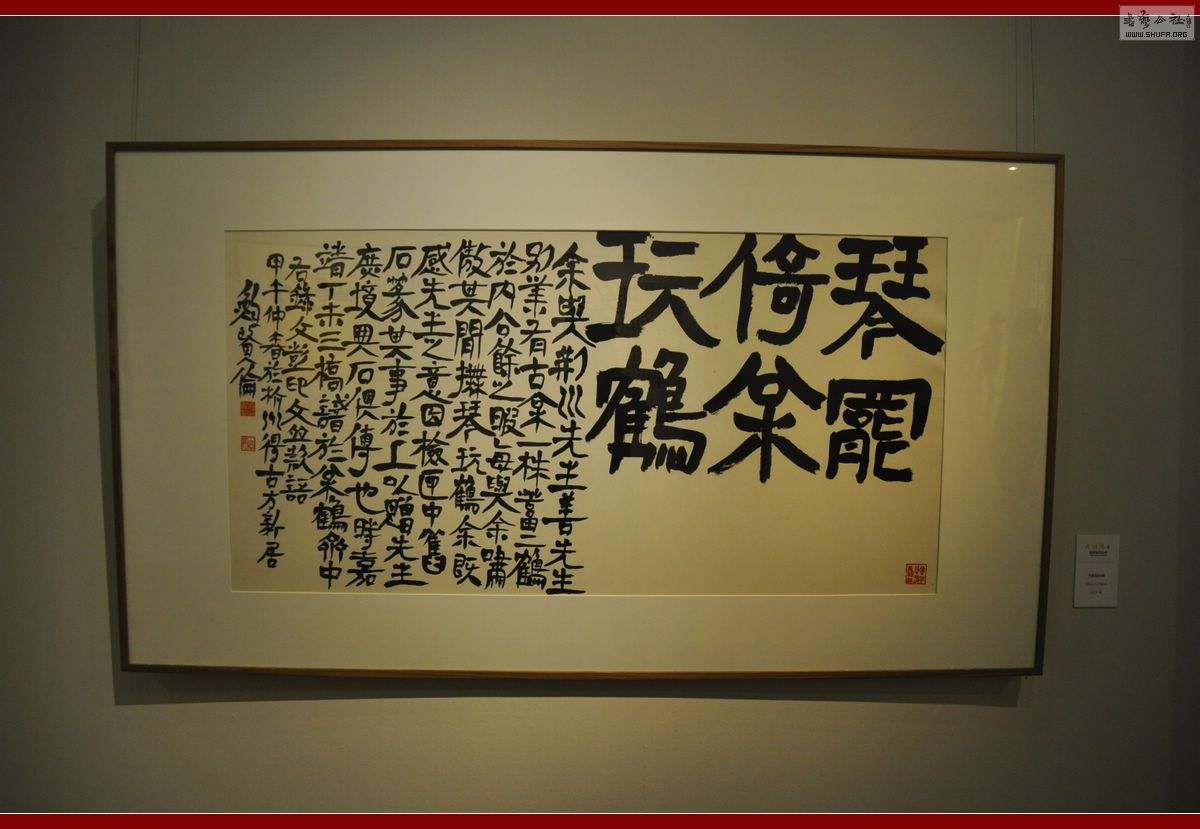 琴罷
倚枀
玩鶴
余與荊川先生善先生
別業有古枀一株蓄二鶴
於內公餘之暇每與余嘯
傲其間撫琴玩鶴余既
感先生之意因檢匣中舊
石篆其事於上以贈先生
庶境與石俱傳也時嘉
靖丁未三橋識於枀鶴齋中
右錄文彭印文並款語
甲午仲春於杭州得古方新居
鮑賢倫
WWW.SHUFA.ORG